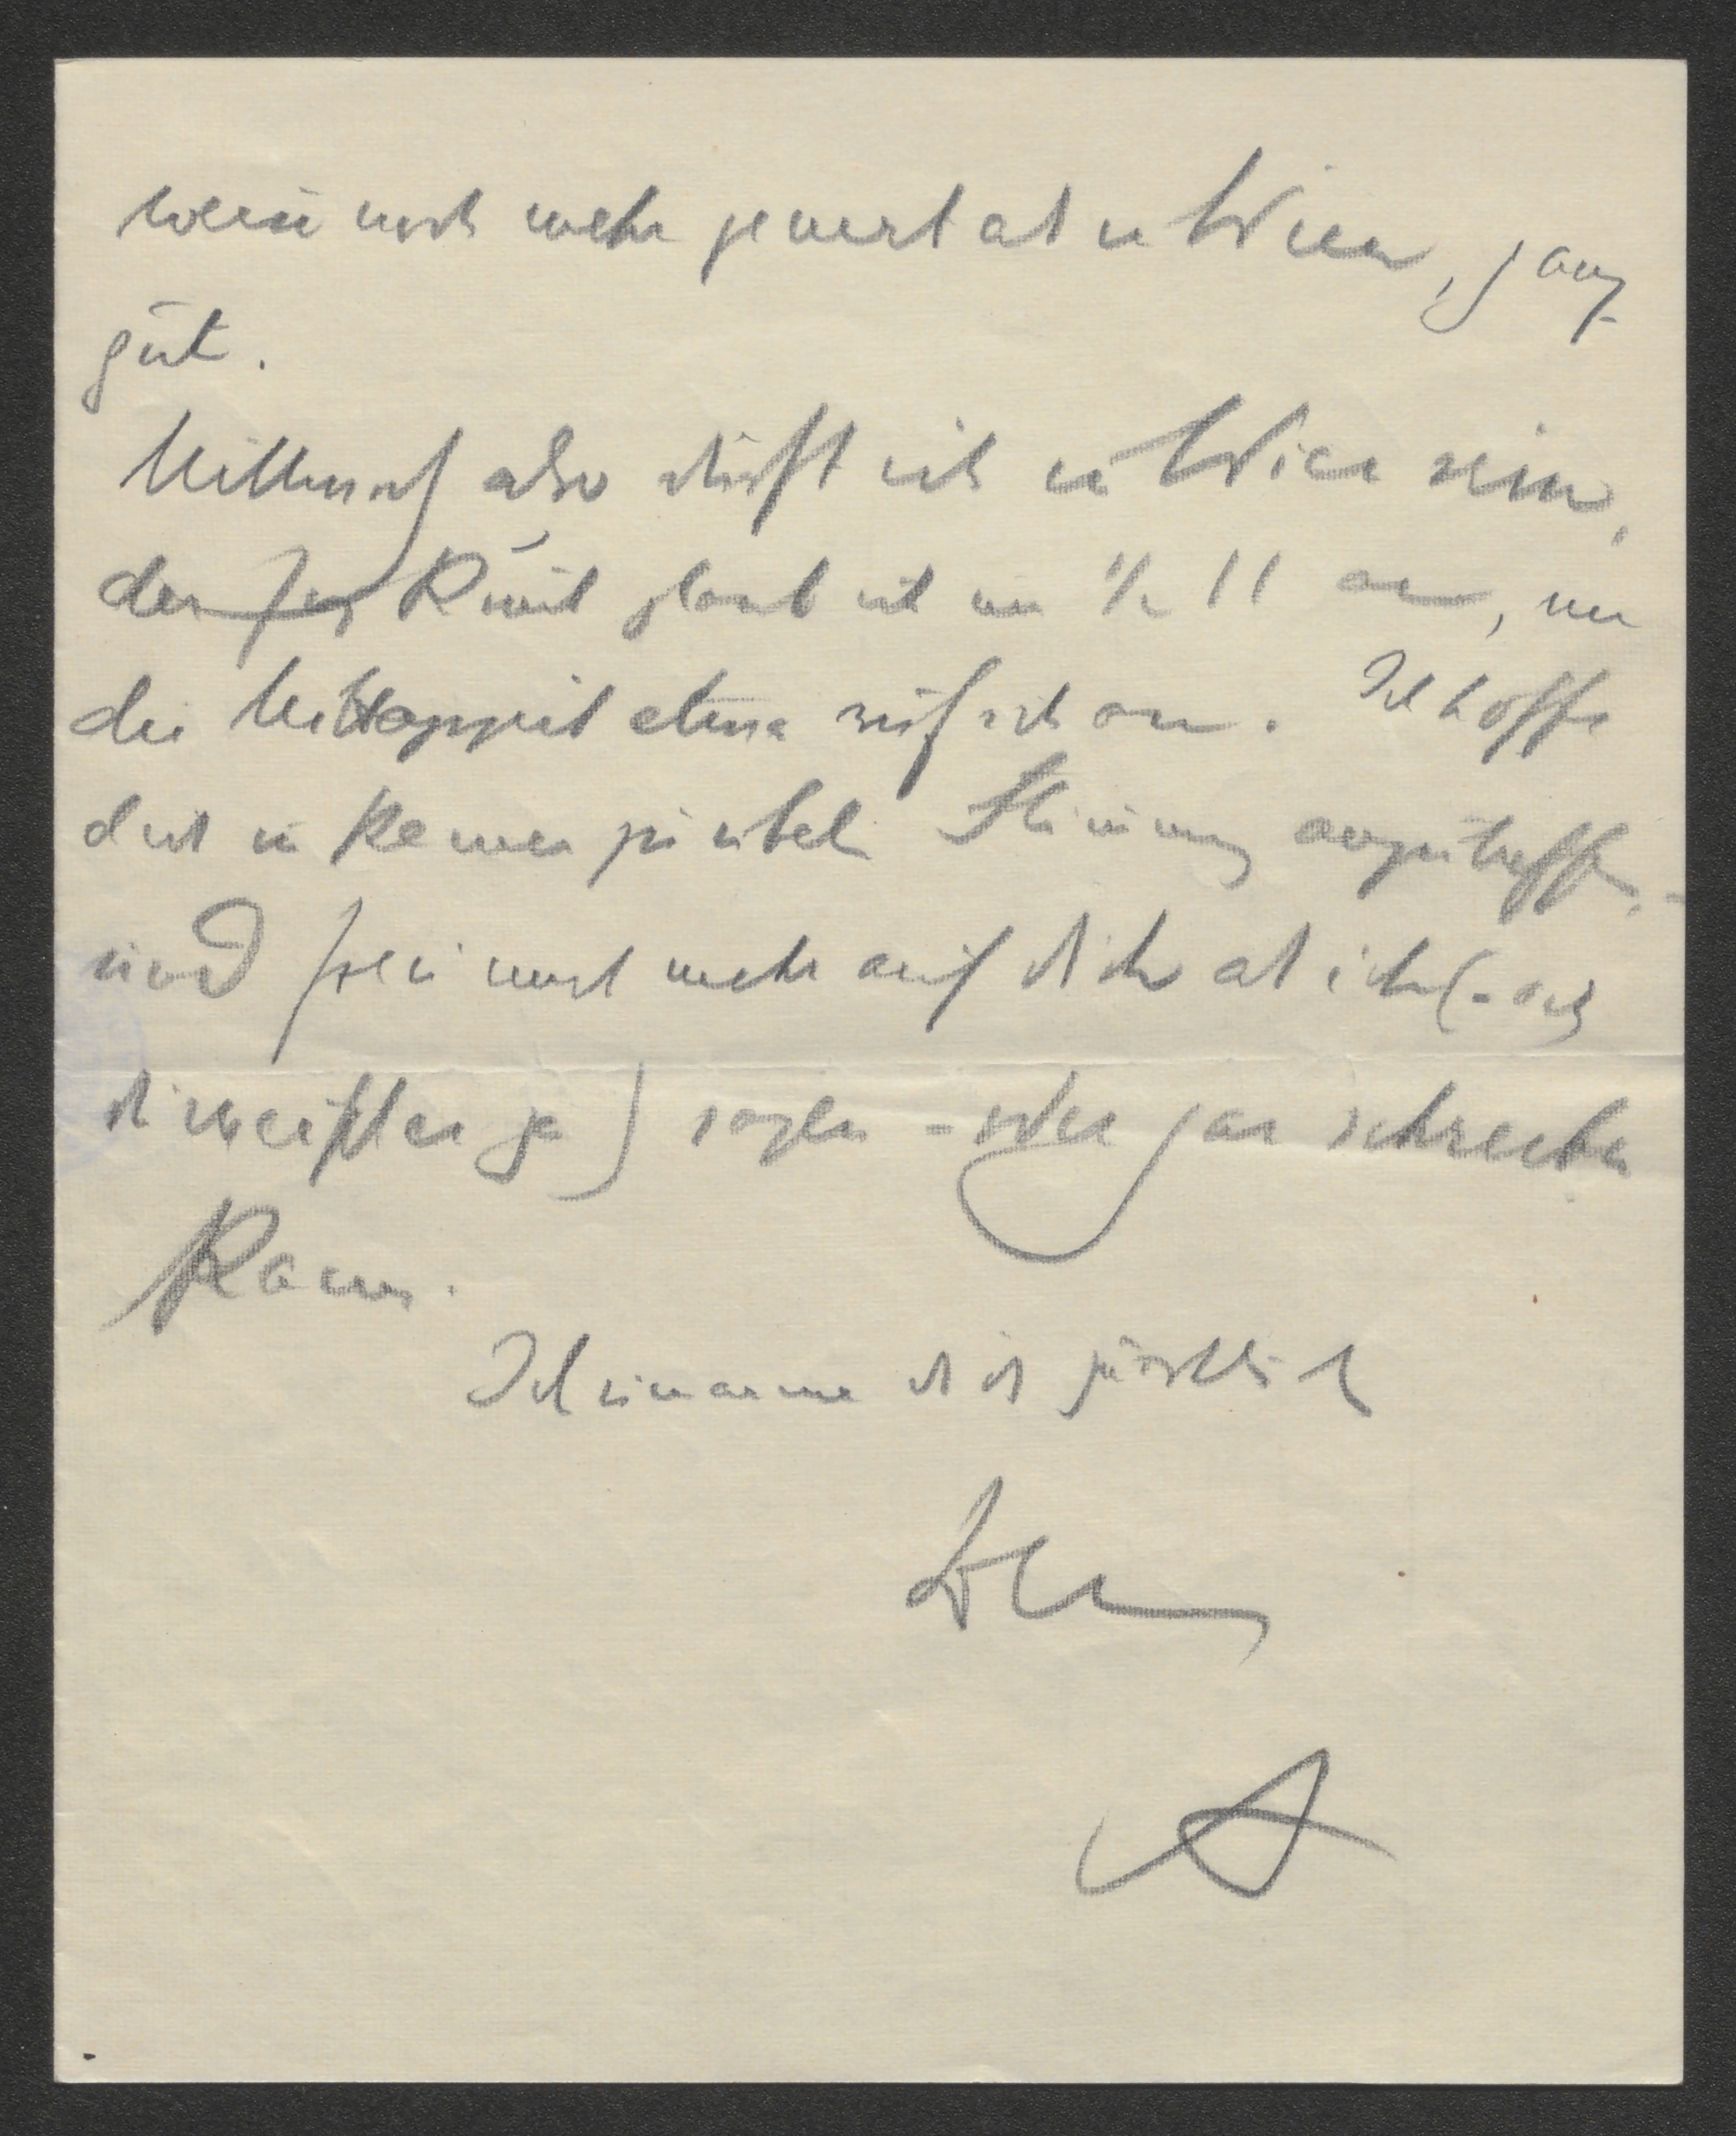 wenn noch mehr genervt als in Wien, ganz
gut.
Mittwoch also dürft ich in Wien sein,
der Zug kommt glaub ich um ½ 11 an, um
die Mittagszeit etwa ruf ich an. Ich hoffe
dich in keiner zu üblen Stimmung anzutreffen. –
und freu mich mehr auf dich als ich (– doch
du weißt es ja) sagen – oder gar schreiben
kann.
Ich umarme dich zärtlich
Dein
A